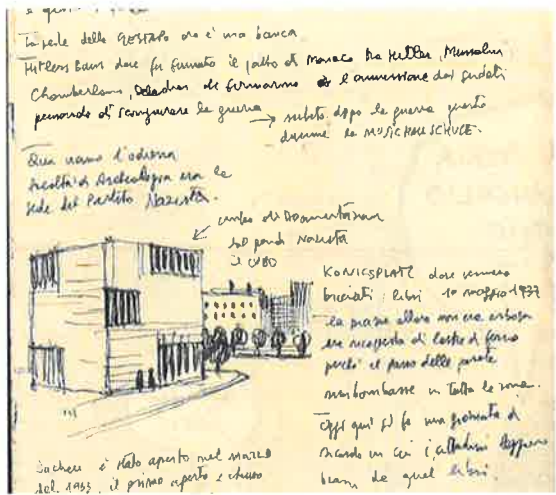 La sede della GESTAPO ora è una banca
Hitlers Baus dove fu firmato il patto di Monaco tra Hitler, Mussolini
Chamberlane, che firmarono l'annessione dei sudeti
pensando di scongiurare la guerra
→ subito dopo la guerra questo
divenne la MUSICHALESCHULE.
Qua vicino l'odierna
facoltà di Archeologia era la
sede del Partito Nazista.
centro di Documentazione
sul partito Nazista
il CUBO
KONIGSPLATZ dove vennero
bruciati i libri 10 maggio 1933
la piazza allora non era erbosa
era ricoperta di lastre di
perché il passo delle parate
rimbombasse in tutta la zona.
Oggi qui si fa una giornata di
ricordo in cui i cittadini leggono
brani di quei libri.
Dachau è stato aperto nel marzo
del 1933, il primo aperto e chiuso